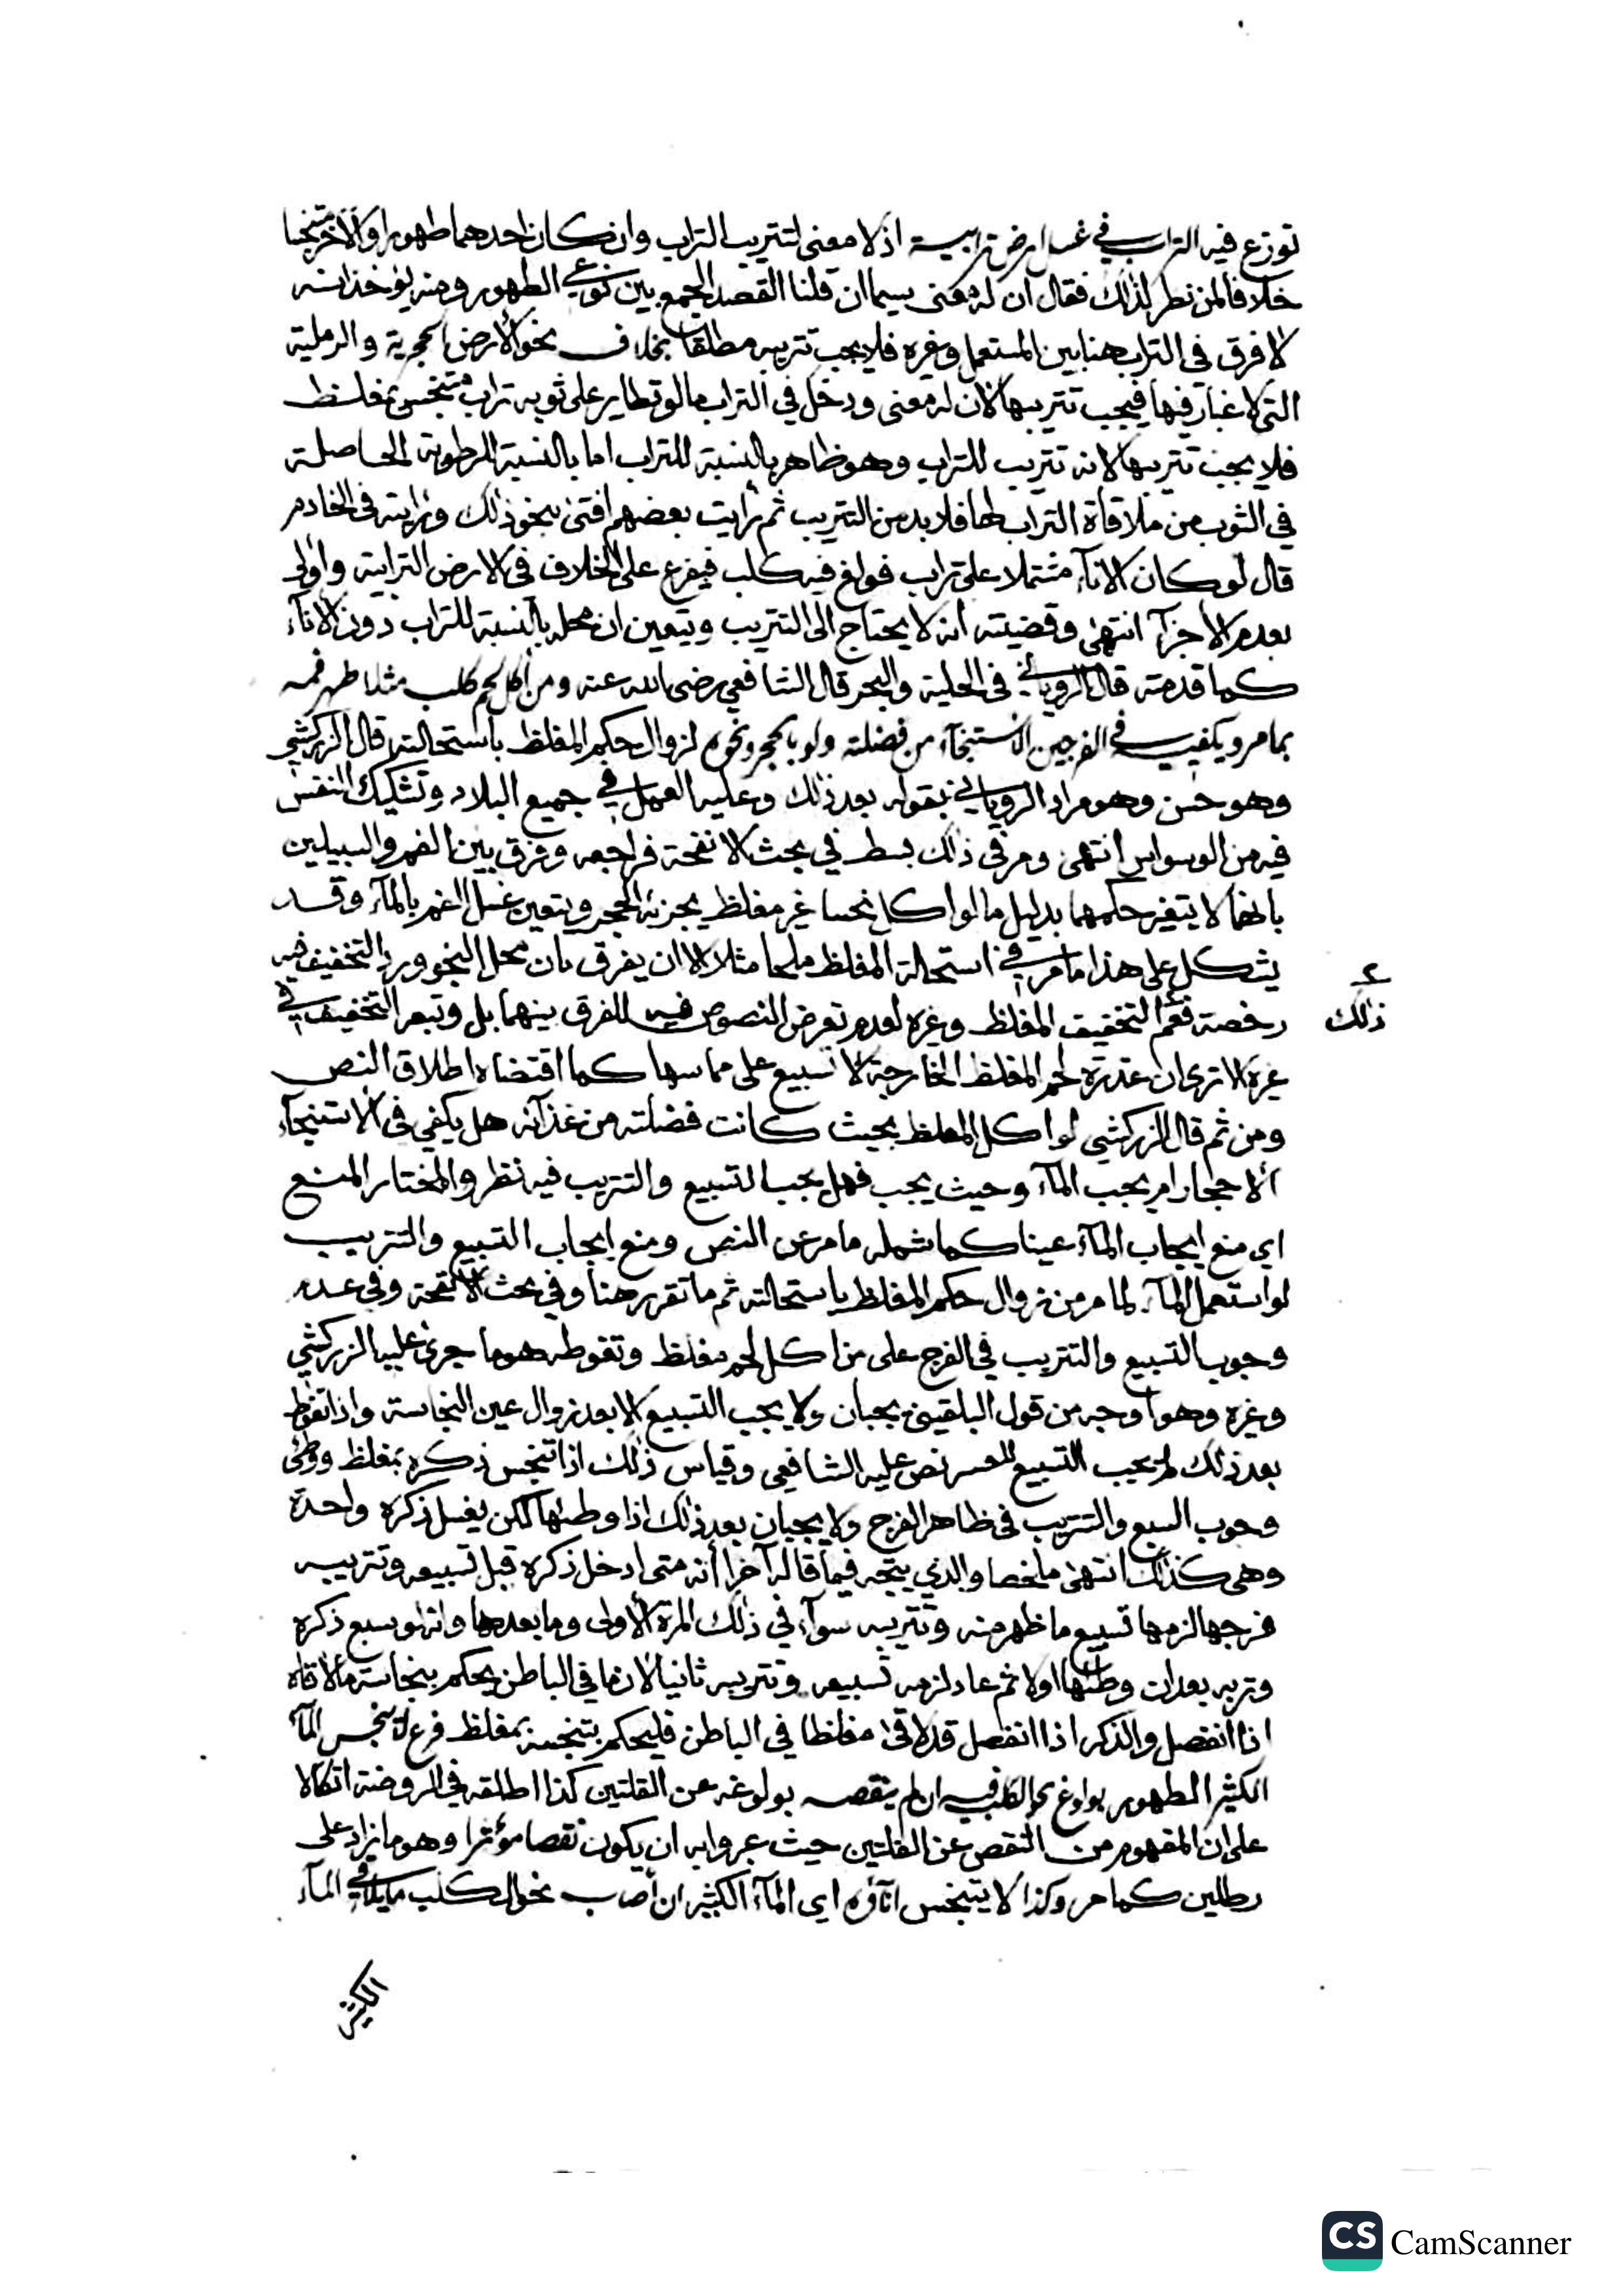 توزع فيه التراب في غسل ارض ترابية اذ لا معنى لتتريب التراب وان كان احدهما طهورا والآخر متنجسا
خلافا لمن نظر لذلك فقال ان له معنى سيما ان قلنا القصد الجمع بين نوعي الطهور ومنه يؤخذ انه
لا فرق في التراب هنا بين المستعمل وغيره فلا يجب تتريبه مطلقا بخلاف نحو الأرض الحجرية والرملية
التي لا غبار فيها فيجب تتريبها لان له معنى ودخل في التراب ما لو تطاير على ثوبه تراب متنجس بمغلظ
فلا يجب تتريبها لانه تتريب للتراب وهو ظاهر بالنسبة للتراب اما بالنسبة للرطوبة الحاصلة
في الثوب من ملاقاة التراب لها فلا بد من التتريب ثم رايت بعضهم افتى بنحو ذلك ورايته في الخادم
قال لو كان الاناء مشتملا على تراب فولغ فيه كلب فيفرع على الخلاف في الارض الترابية واولى
بعدم الاجزآ انتهى وقضيته انه لا يحتاج الى التتريب ويتعين ان محله بالنسبة للتراب دون الانآء
كما قدمته قال الروياني في الحلية والبحر قال الشافعي رضي الله عنه ومن اكل لحم كلب مثلا طهر فمه
بما مر ويكفيه في الفرجين الاستنجآء من فضلته ولو بالحجر ونحوه لزوال حكم المغلظ باستحالته قال الزركشي
وهو حسن وهو مراد الروياني بقوله بعد ذلك وعليه العمل في جميع البلاد وتشكيك النفس
فيه من الوسواس انتهى ومر في ذلك بسط في بحث الانفحة فراجعه وفرق بين الفم والسبيلين
بانهما لا يتغير حكمهما بدليل ما لو اكل نجسا غير مغلظ يجزئه الحجر ويتعين غسل الفم بالمآء وقد
يشكل على هذا ما مر في استحالة المغلظ ملحا مثلا الا ان يفرق بان محل النجو ورد التخفيف فيه
ذلك
رخصة فعم التخفيف المغلظ وغيره لعدم تعرض النصوص فيه للفرق بينهما بل وتبعه التخفيف في
غيره الا ترى ان عذرة لحم المغلظ الخارجة لا تسبيع على مماسها كما اقتضاه اطلاق النص
ومن ثم قال الزركشي لو اكل المغلظ بحيث كانت فضلته من غذآئه هل يكفي في الاستنجآء
الاحجار ام يجب المآء وحيث يجب فهل يجب التسبيع والتتريب فيه نظر والمختار المنع
اي منع ايجاب المآء عينا كما شمله ما مر عن النص ومنع ايجاب التسبيع والتتريب
لو استعمل المآء لما مر من زوال حكم المغلظ باستحالته ثم ما تقرر هنا وفي بحث الانفحة وفي عدم
وجوب التسبيع والتتريب في الفرج على من اكل لحم مغلظ وتغوطه هو ما جرى عليه الزركشي
وغيره وهو اوجه من قول البلقيني يجبان ولا يجب التسبيع الا بعد زوال عين النجاسة واذا تغوط
بعد ذلك لم يجب التسبيع للعسر نص عليه الشافعي وقياس ذلك اذا تنجس ذكره بمغلظ ووطئ
وجوب السبع والتتريب في ظاهر الفرج ولا يجبان بعد ذلك اذا وطئها لكن يغسل ذكره واحدة
وهي كذلك انتهى ملخصا والذي يتجه فيما قاله آخرا أنه متى ادخل ذكره قبل تسبيعه وتتريبه
فرجها لزمها تسبيع ما ظهر منه وتتريبه سوآء في ذلك المرة الاولى وما بعدها وانه لو سبع ذكره
وتربه بعد ان وطئها اولا ثم عاد لزمه تسبيعه وتتريبه ثانيا لان ما في الباطن يحكم بنجاسة ما لاقاه
اذا انفصل والذكر اذا انفصل قد لاقى مغلظا في الباطن فليحكم بتنجسه بمغلظ فرع لا ينجس المآء
الكثير الطهور بولوغ نحو الكلب فيه ان لم ينقصه بولوغه عن القلتين كذا اطلقه في الروضة اتكالا
على ان المفهوم من النقص عن القلتين حيث عبروا به ان يكون نقصا مؤثرا وهو ما زاد على
رطلين كما مر وكذا لا يتنجس انآؤه اي المآء الكثير ان أصاب نحو الكلب ما يلاقي المآء
الكثير
CS CamScanner